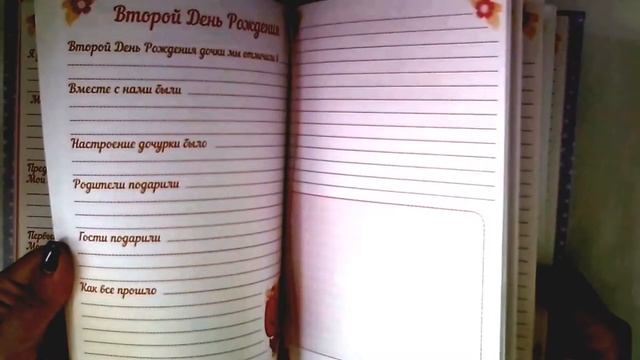 Второй День Рождения
Второй День Рождения дочки мы отметили
Вместе с нами были
Настроение дочурки было
Родители подарили
Гости подарили
Как все прошло
Мой